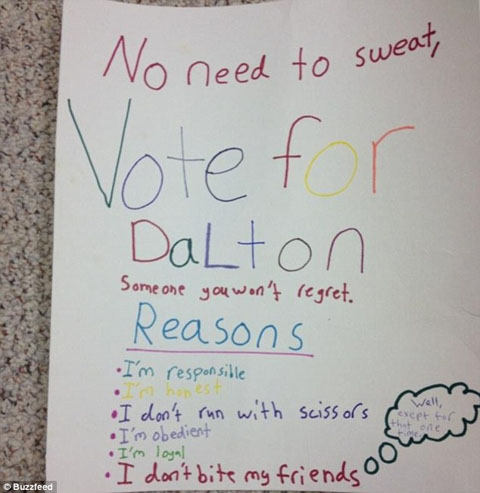 No need to sweat,
Vote for
DaLton
Someone you won't regret.
Reasons
•I'm responsible
•I'm honest
•I don't run with scissors
•I'm obedient
•I'm loyal
•I don't bite my friends
Well,
except for
that one
time...
© Buzzfeed